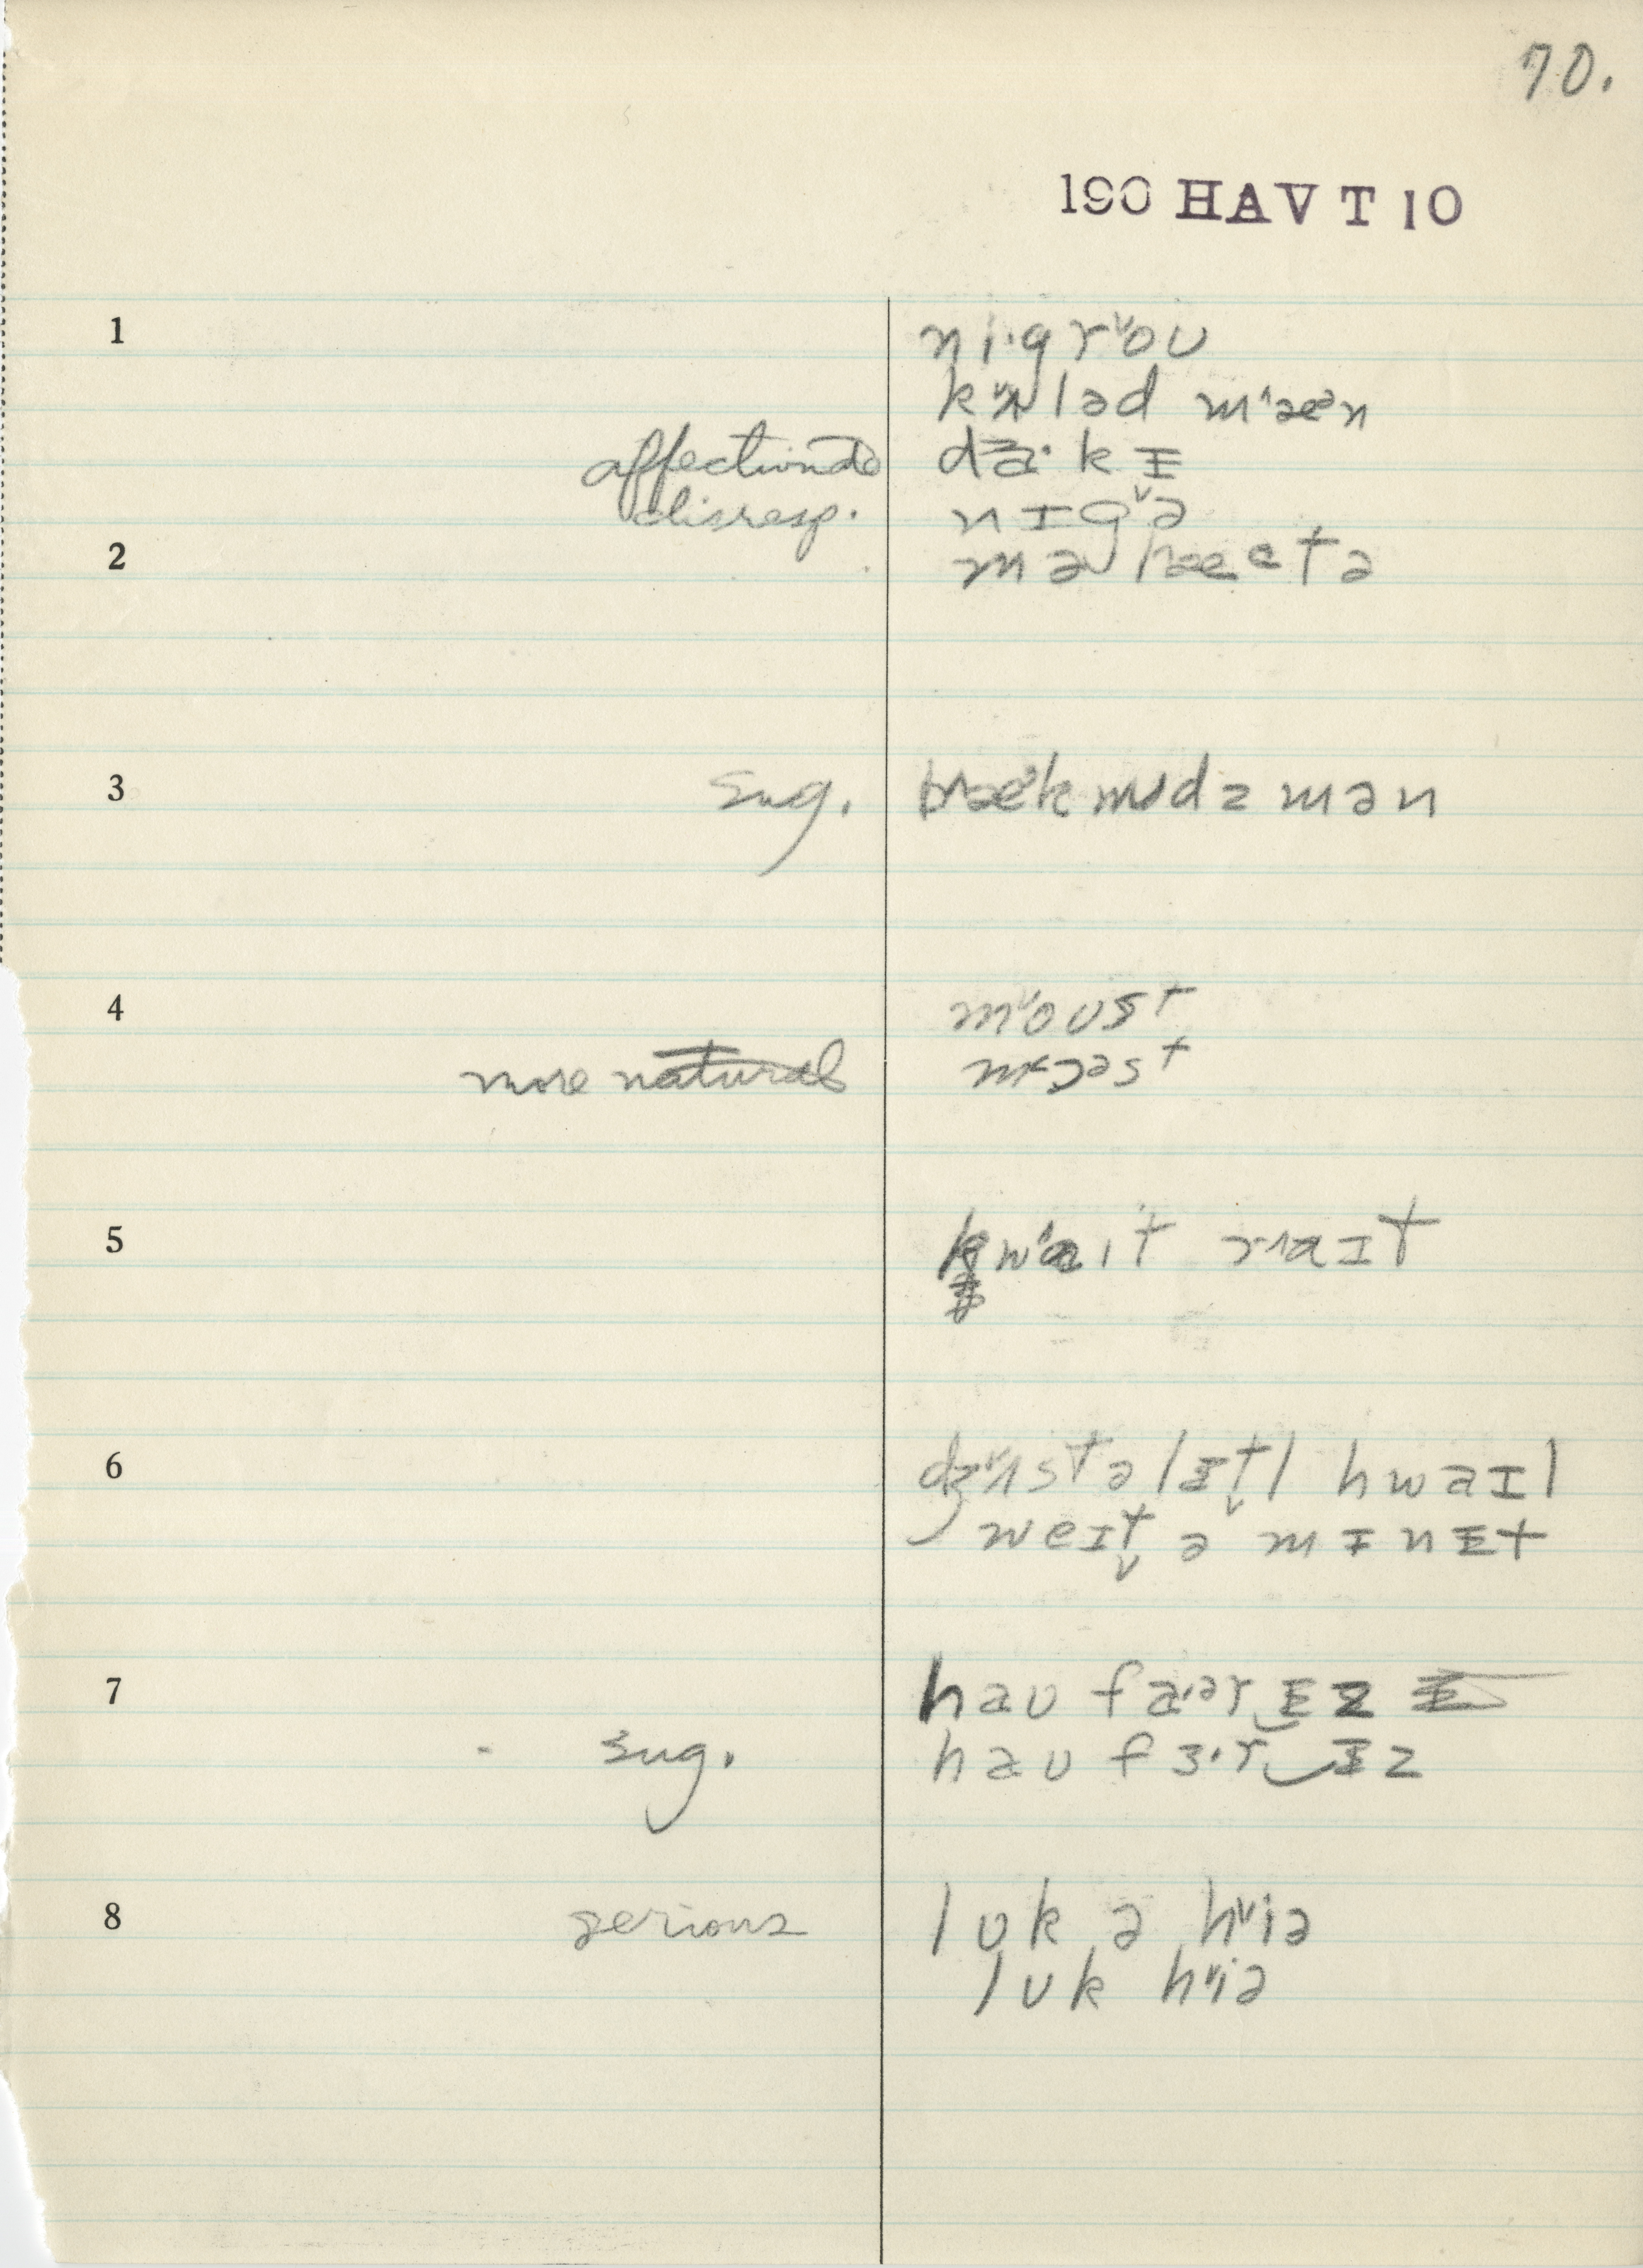 70.
190 HAV T 10
1 ni·gr˅oʊ
k˅ʌləd m˄æən
affectionate da·kɪ
disresp. nɪg˅ə
2
3 sug. mən
4 m˅oʊst
more natural
5 kw˄aɪt r˄aɪt
6 dʒ˅ʌst ə lɪt̬l hwaɪl
weɪt̬ ə mɪnɪt
7 haʊ fa·ər‿ɪz
sug. haʊ fɜ·r‿ɪz
8 serious lʊk ə h˅iə
lʊk h˅iə